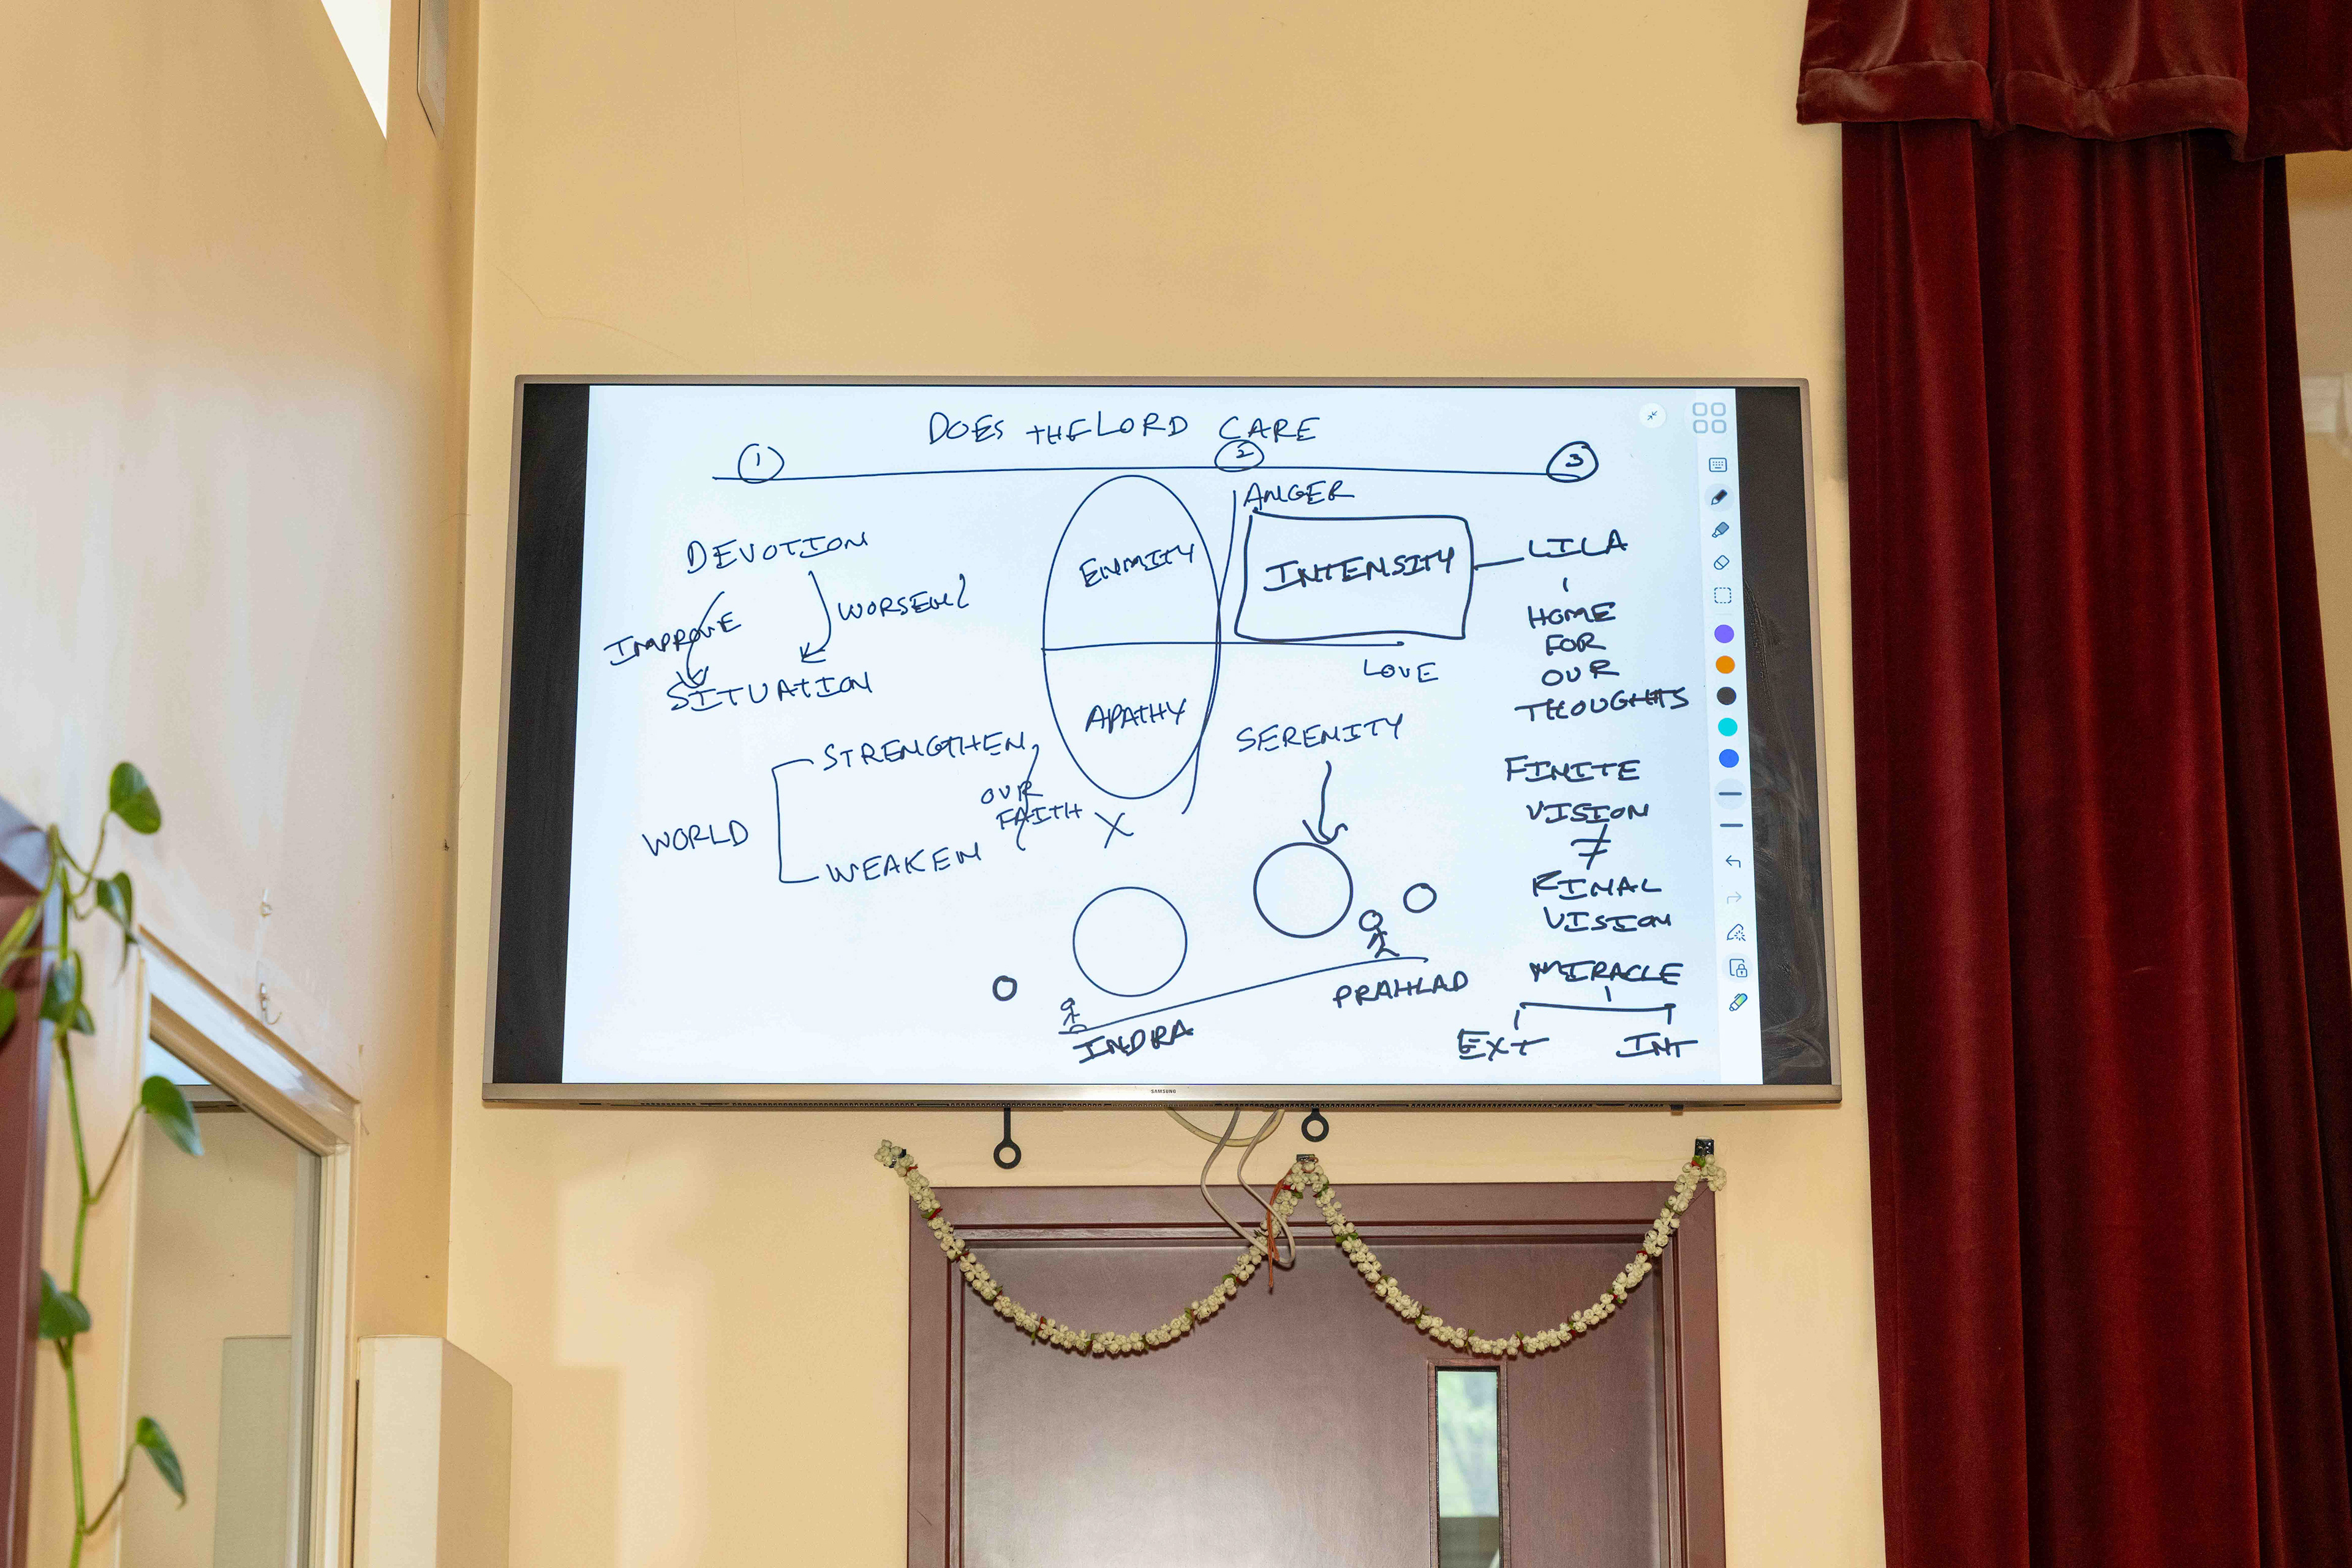 DOES THE LORD CARE
1
2
3
DEVOTION
IMPROVE
WORSEN?
SITUATION
WORLD
STRENGTHEN
OUR
FAITH
WEAKEN
ENMITY
APATHY
X
ANGER
INTENSITY
LOVE
SERENITY
INDRA
PRAHLAD
LILA
HOME
FOR
OUR
THOUGHTS
FINITE
VISION
≠
FINAL
VISION
MIRACLE
EXT
INT
SAMSUNG